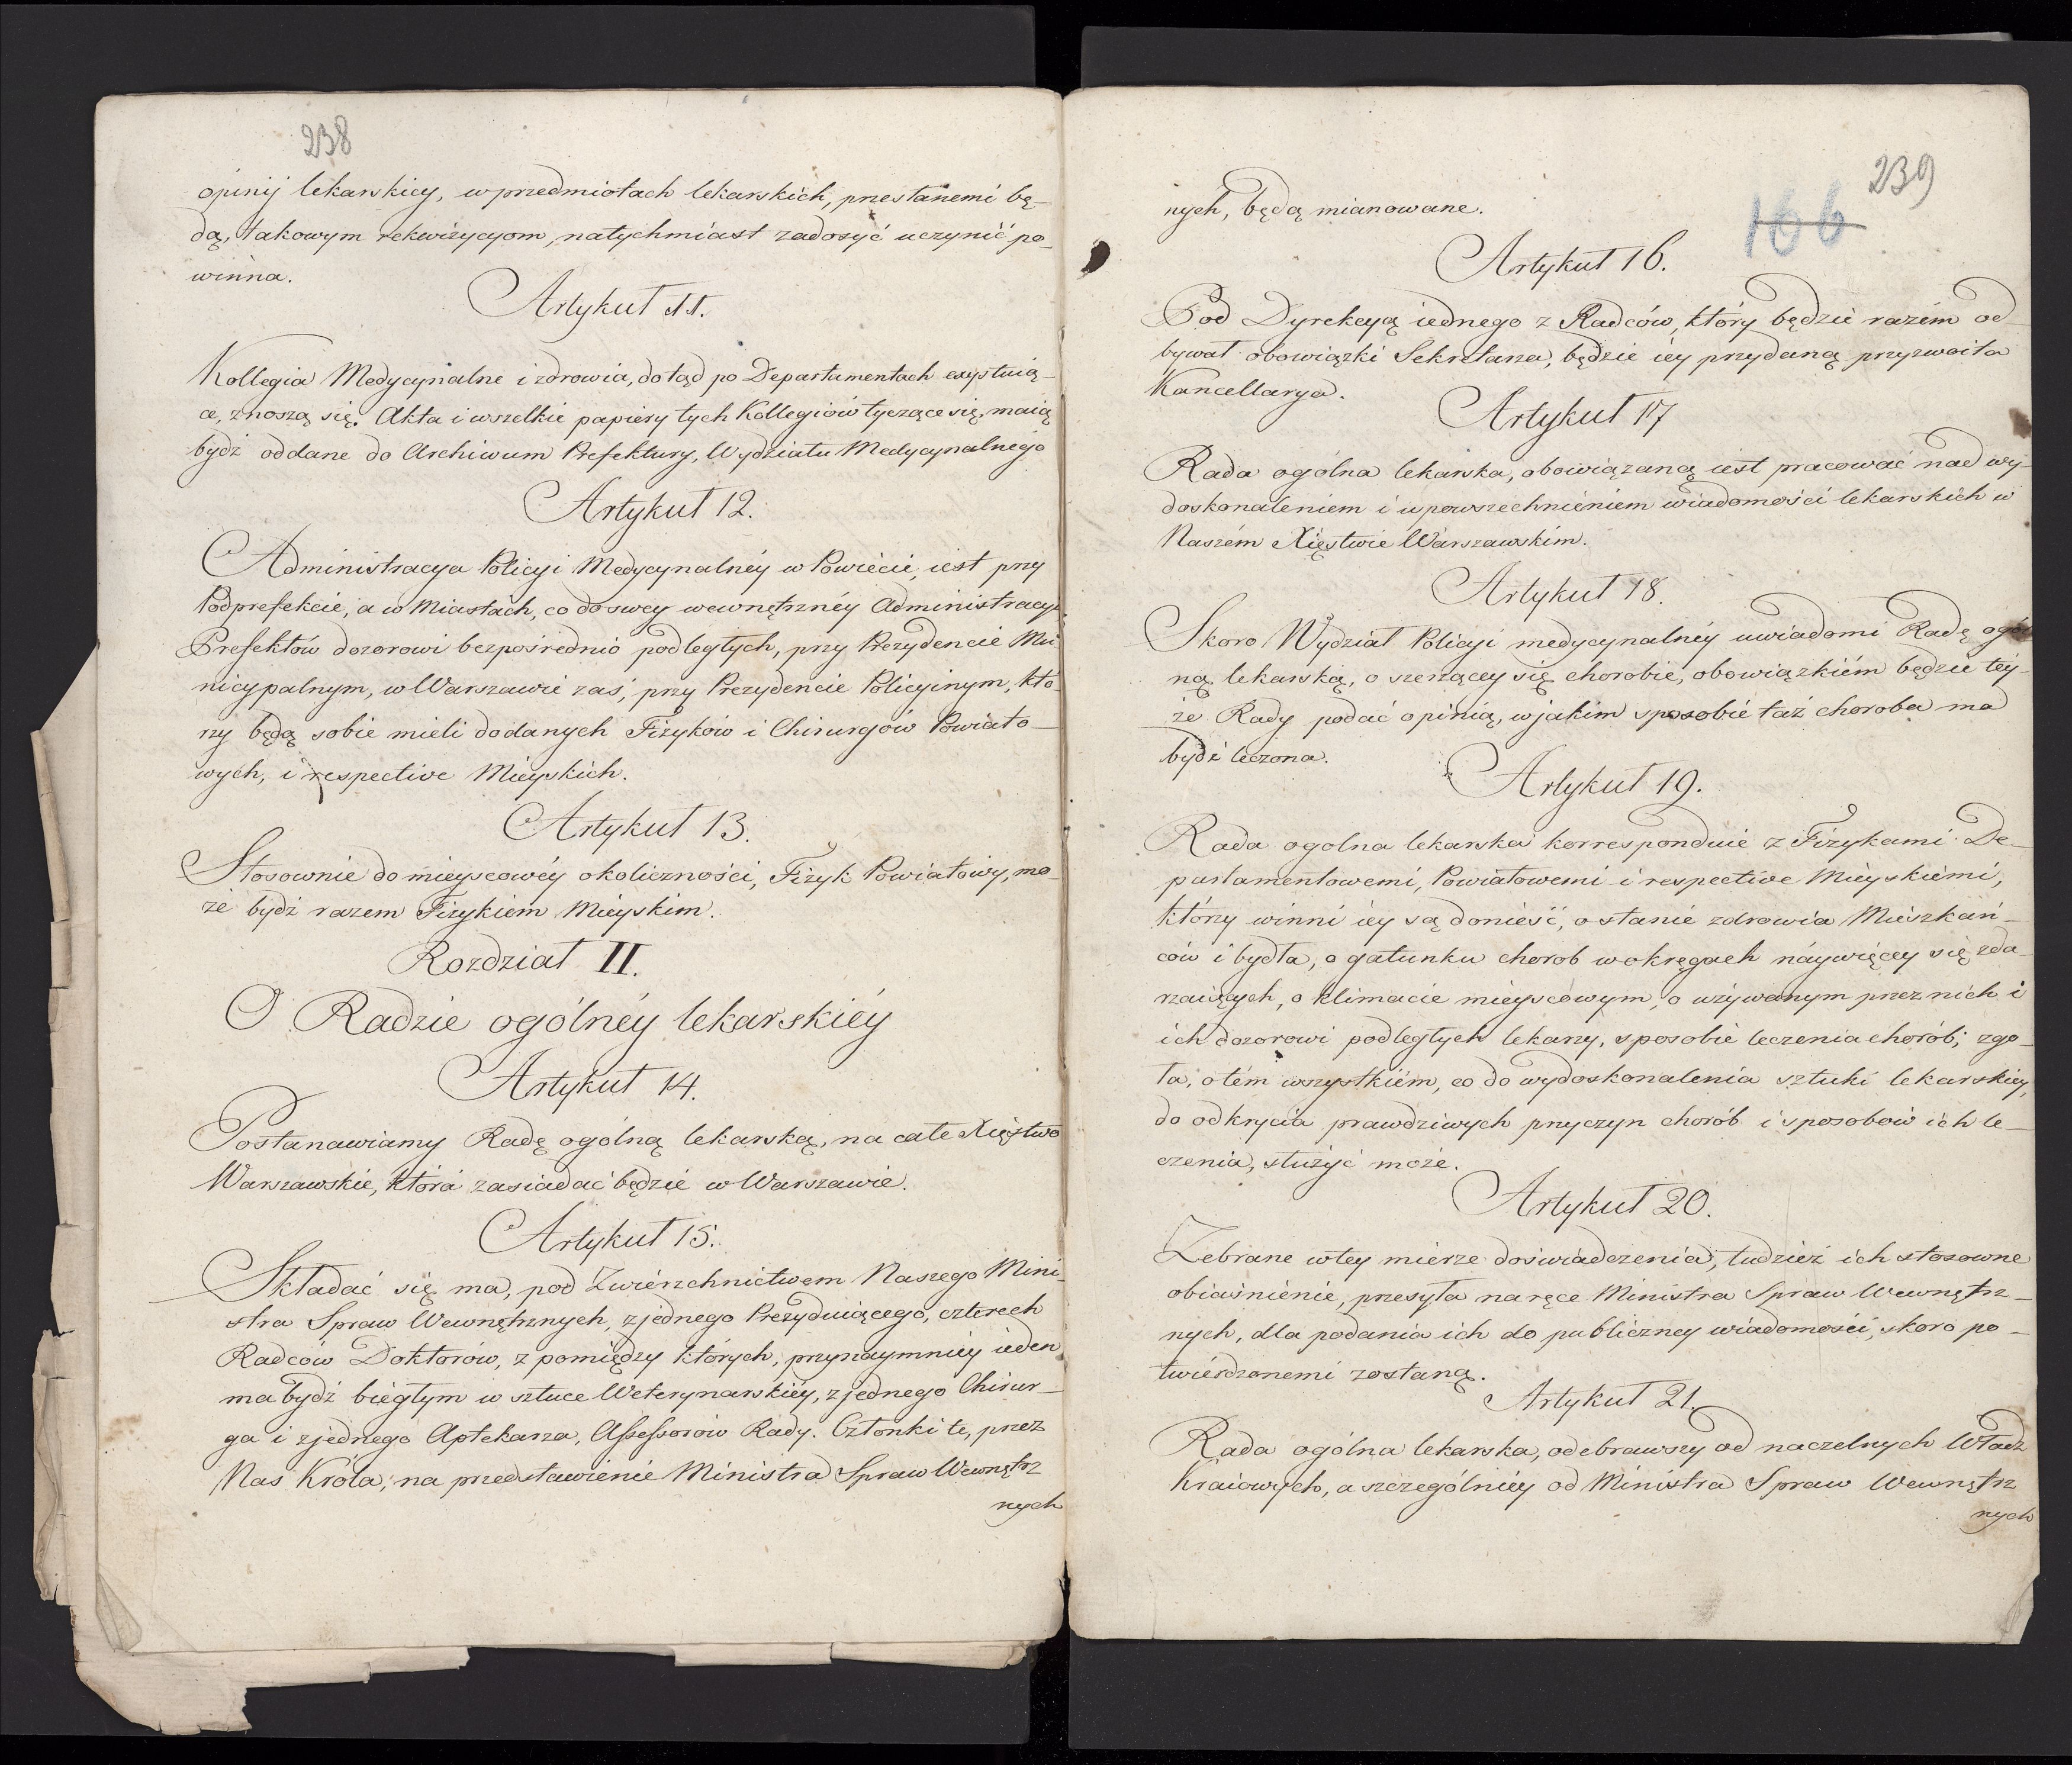 238
opinij lekarskiey, w przedmiotach lekarskich, przestanemi bę-
dą, takowym rekwizycyom, natychmiast zadosyć uczynić po-
winna.
Artykuł 11.
Kollegia Medycynalne i zdrowia, dotąd po Departamentach exystuią-
ce, znoszą się. Akta i wszelkie papiery tych Kollegiów tyczące się, maią
bydź oddane do Archiwum Prefektury, Wydziału Medycynalnego
Artykuł 12.
Administracya Policyi Medycynalnéy w Powiecie, iest przy
Podprefekcie, a w Miastach, co do swey wewnętrznéy Administracyi
Prefektów dozorowi bezpośrednio podległych, przy Prezydencie Mu
nicypalnym, w Warszawie zaś, przy Prezydencie Policyinym, któ-
rzy będą sobie mieli dodanych Fizyków i Chirurgów Powiato-
wych, i respective Mieyskich.
Artykuł 13.
Stosownie do mieyscowéy okoliczności, Fizyk Powiatowy, mo-
że bydź razem Fizykiem Mieyskim.
Rozdział II.
O Radzie ogólnéy lekarskiéy
Artykuł 14.
Postanawiamy Radę ogólną lekarską, na całe Xięstwo
Warszawskie, która zasiadać będzie w Warszawie.
Artykuł 15.
Składać się ma, pod Zwierzchnictwem Naszego Mini-
stra Spraw Wewnętrznych, z jednego Prezyduiącego, czterech
Radców Doktorów, z pomiędzy których, przynaymniéy ieden
ma bydź biegłym w sztuce Weterynarskiéy, z jednego Chirur-
ga i z jednego Aptekarza, Assessorów Rady. Członki te, przez
Nas Króla, na przedstawienie Ministra Spraw Wewnętrz
nych
239
166
nych, będą mianowane.
Artykuł 16.
Pod Dyrekcyą iednego z Radców, który będzie razém od-
bywał obowiązki Sekretarza, będzie iey przydaną przyzwoita
Kancellarya.
Artykuł 17
Rada ogólna lekarska, obowiązaną iest pracować nad wy-
doskonaleniem i upowszechnieniem wiadomości lekarskich w
Naszém Xięstwie Warszawskim.
Artykuł 18.
Skoro Wydział Policyi medycynalnéy uwiadomi Radę ogól
ną lekarską, o szerzącey się chorobie, obowiązkiém będzie téy-
że Rady podać opinią, w jakim sposobie taż choroba ma
bydź leczona.
Artykuł 19.
Rada ogolna lekarska korresponduie z Fizykami De-
partamentowemi, Powiatowemi i respective Mieyskiemi,
którzy winni iey są donieść, o stanie zdrowia Mieszkań-
ców i bydła, o gatunku chorob w okręgach náywięcey się zda-
rzaiących, o klimacie mieyscowym, o używanym przez nich i
ich dozorowi podległych lekarzy, sposobie leczenia chorób; zgo-
ła, o tém wszystkiém, co do wydoskonalenia sztuki lekarskiey,
do odkrycia prawdziwych przyczyn chorób i sposobów ich le-
czenia, służyć może.
Artykuł 20.
Zebrane w tey mierze doświadczenia, tudzież ich stosowne
obiaśnienie, przesyła na ręce Ministra Spraw Wewnętrz-
nych, dla podania ich do publiczney wiadomości, skoro po-
twiérdzonemi zostaną.
Artykuł 21.
Rada ogólna lekarska, odebrawszy od naczelnych Władz
Kraiowych, a szczególniéy od Ministra Spraw Wewnętrz
nych